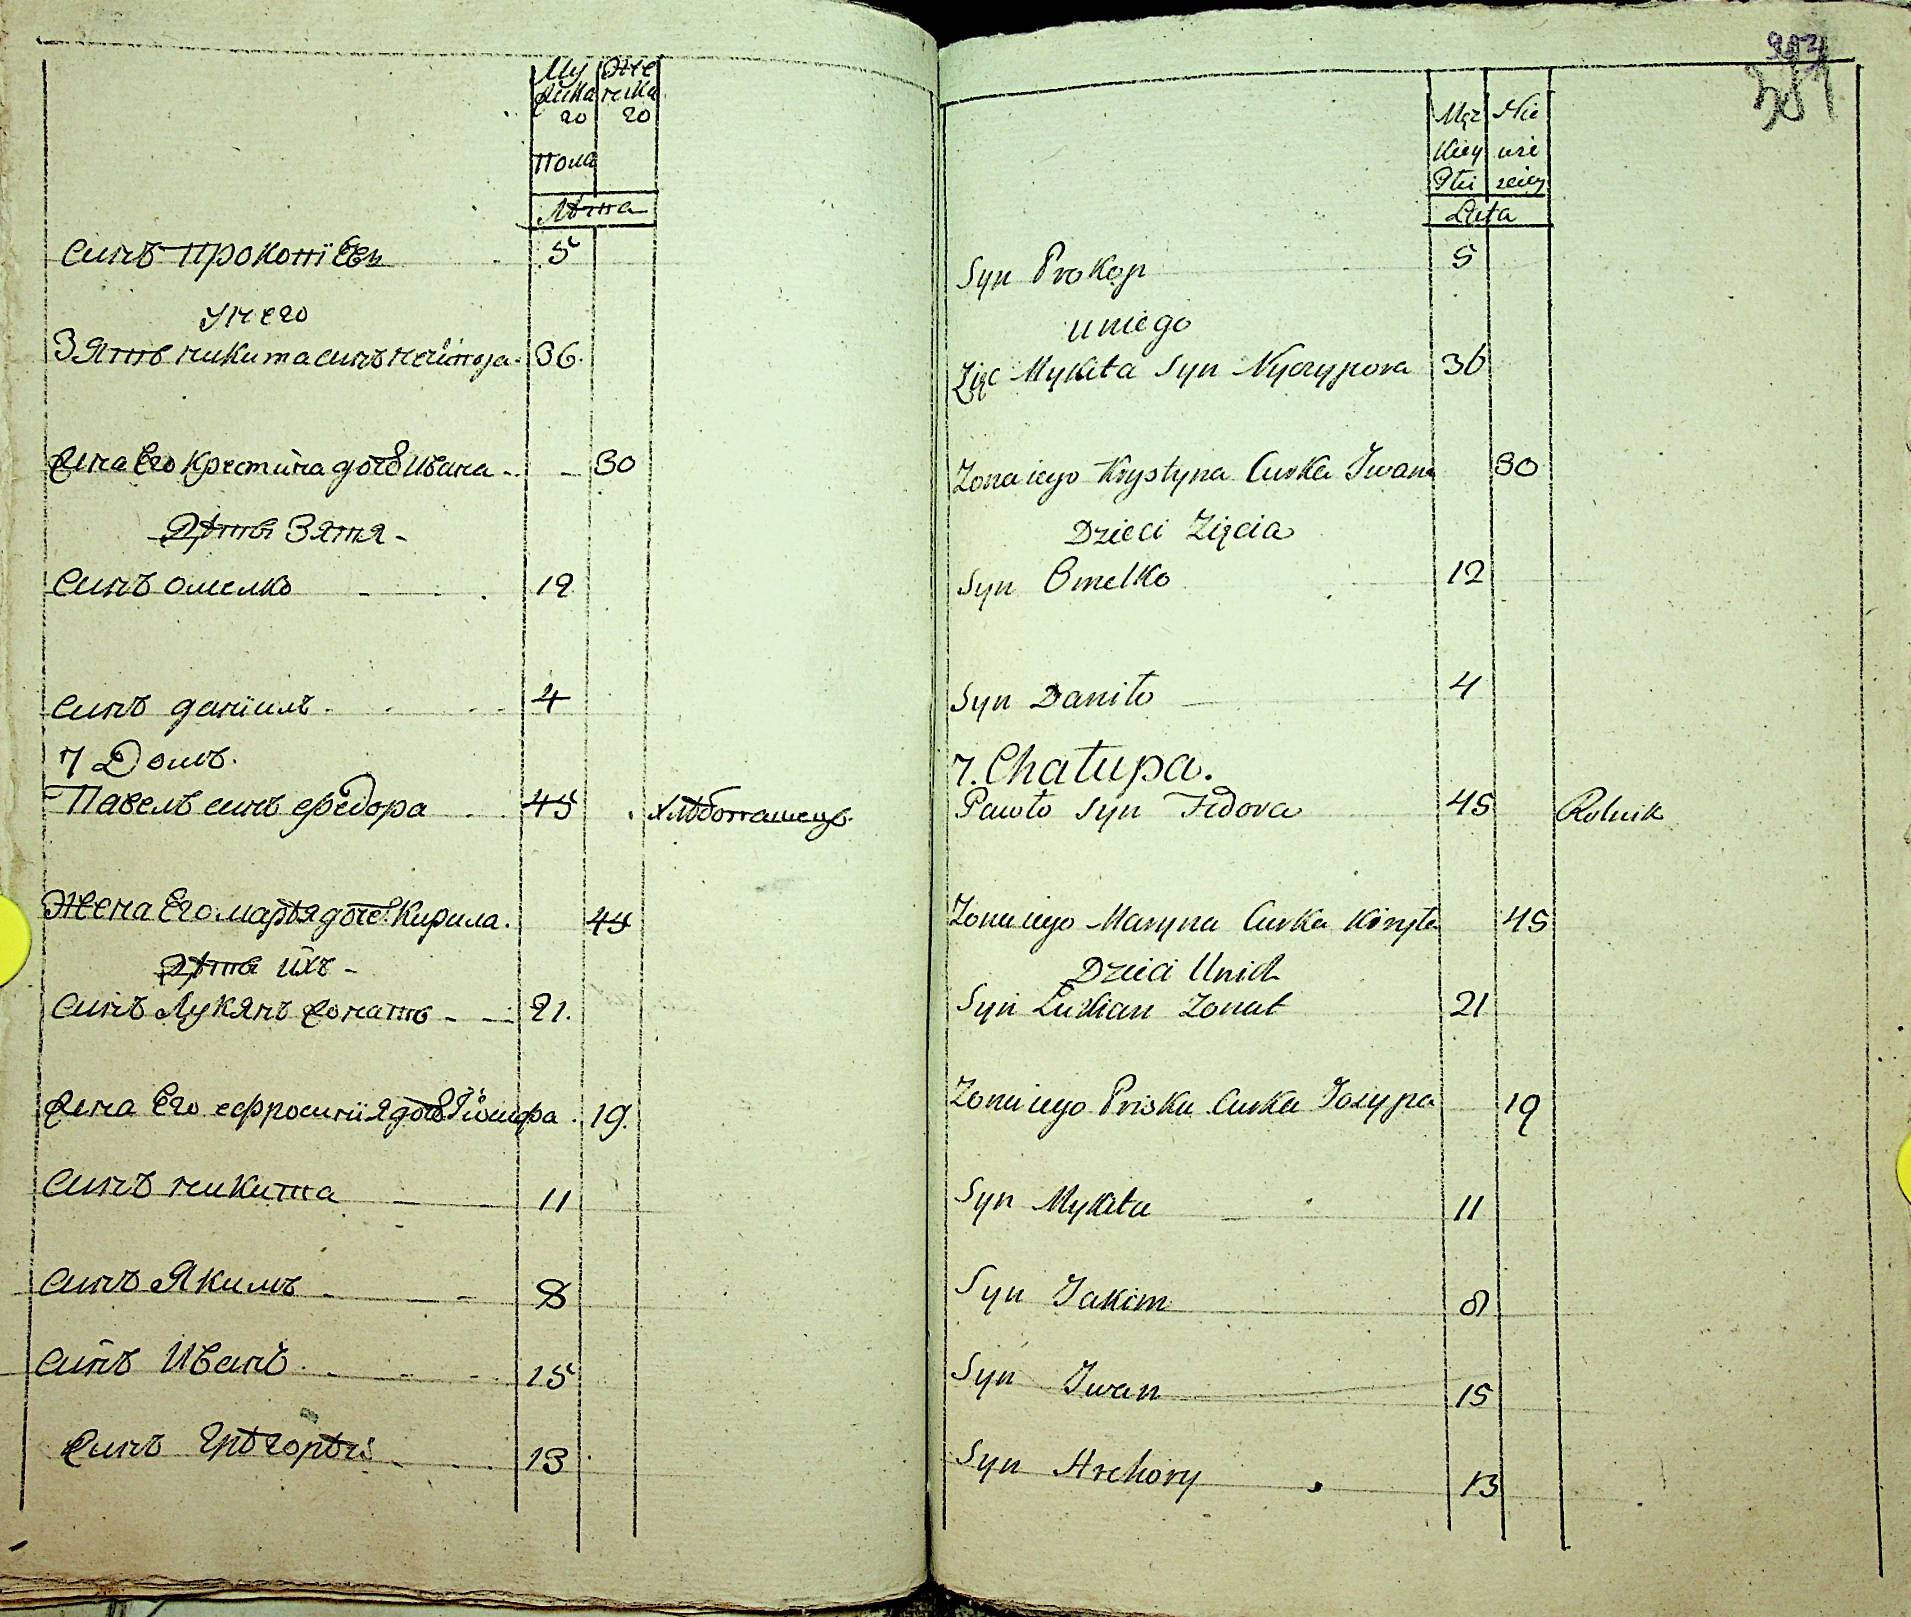 Му Же
жска нска
го го
пола
Лѣта
Синъ Прокопіевъ 5
У него
Зятъ никита синъ нечипора 36.
Жена Его крестина дочъ Ивана 30
Дѣти Зятя
Синъ омелко 12
Синъ даніилъ 4
7 Домъ.
Павелъ синъ федора 45 хлѣбопашецъ.
Жена Его марья дочь Кирила. 45
Дѣти ихъ
Синъ Лукянъ жонатъ 21.
Жена Его ефросинія дочъ Іосифа 19.
Синъ никита 11
Синъ Якимъ 8
Синъ Иванъ 15
Синъ Грѣгорѣй 13
Męz Nie
kiey wie
Płci sciey
Lata
Syn Prokop 5
u niego
Zięc Mykita Syn Nyczypora 36
Zona iego Krystyna Curka Iwana 30
Dzieci Zięcia
Syn Omelko 12
Syn Daniło 4
7. Chałupa.
Pawło Syn Fedora 45 Rolnik
Zona iego Maryna Curka Kiryła 45
Dzieci Unich
Syn Łukian Zonat 21
Zona iego Priska Curka Josypa 19
Syn Mykita 11
Syn Jakim 8
Syn Iwan 15
Syn Hrehory 13